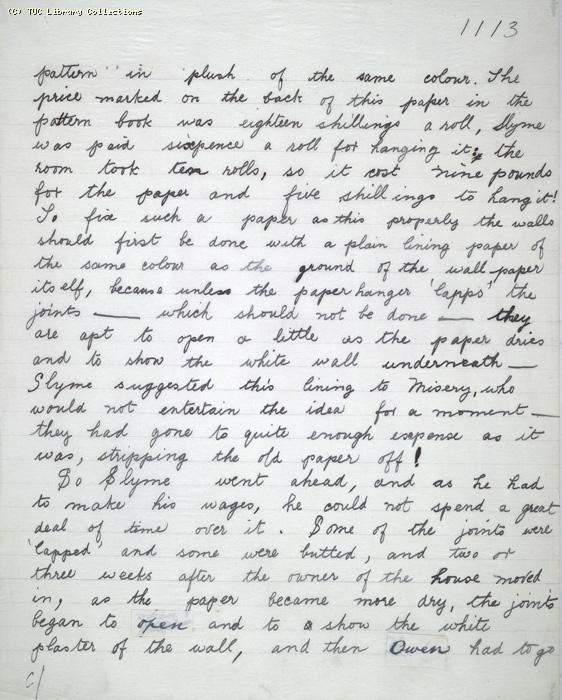 (C) TUC Library Collections
1113
pattern in plush of the same colour. The
price marked on the back of this paper in the
pattern book was eighteen shillings a roll, Slyme
was paid sixpence a roll for hanging it; the
room took ten rolls, so it cost nine pounds
for the paper and five shillings to hang it!
To fix such a paper as this properly the walls
should first be done with a plain lining paper of
the same colour as the ground of the wall-paper
itself, because unless the paperhanger 'lapps' the
joints — which should not be done — they
are apt to open a little as the paper dries
and to show the white wall underneath —
Slyme suggested this lining to Misery, who
would not entertain the idea for a moment —
they had gone to quite enough expense as it
was, stripping the old paper off!
So Slyme went ahead, and as he had
to make his wages, he could not spend a great
deal of time over it. Some of the joints were
'lapped' and some were butted, and two or
three weeks after the owner of the house moved
in, as the paper became more dry, the joints
began to open and to show the white
plaster of the wall, and then Owen had to go
c/